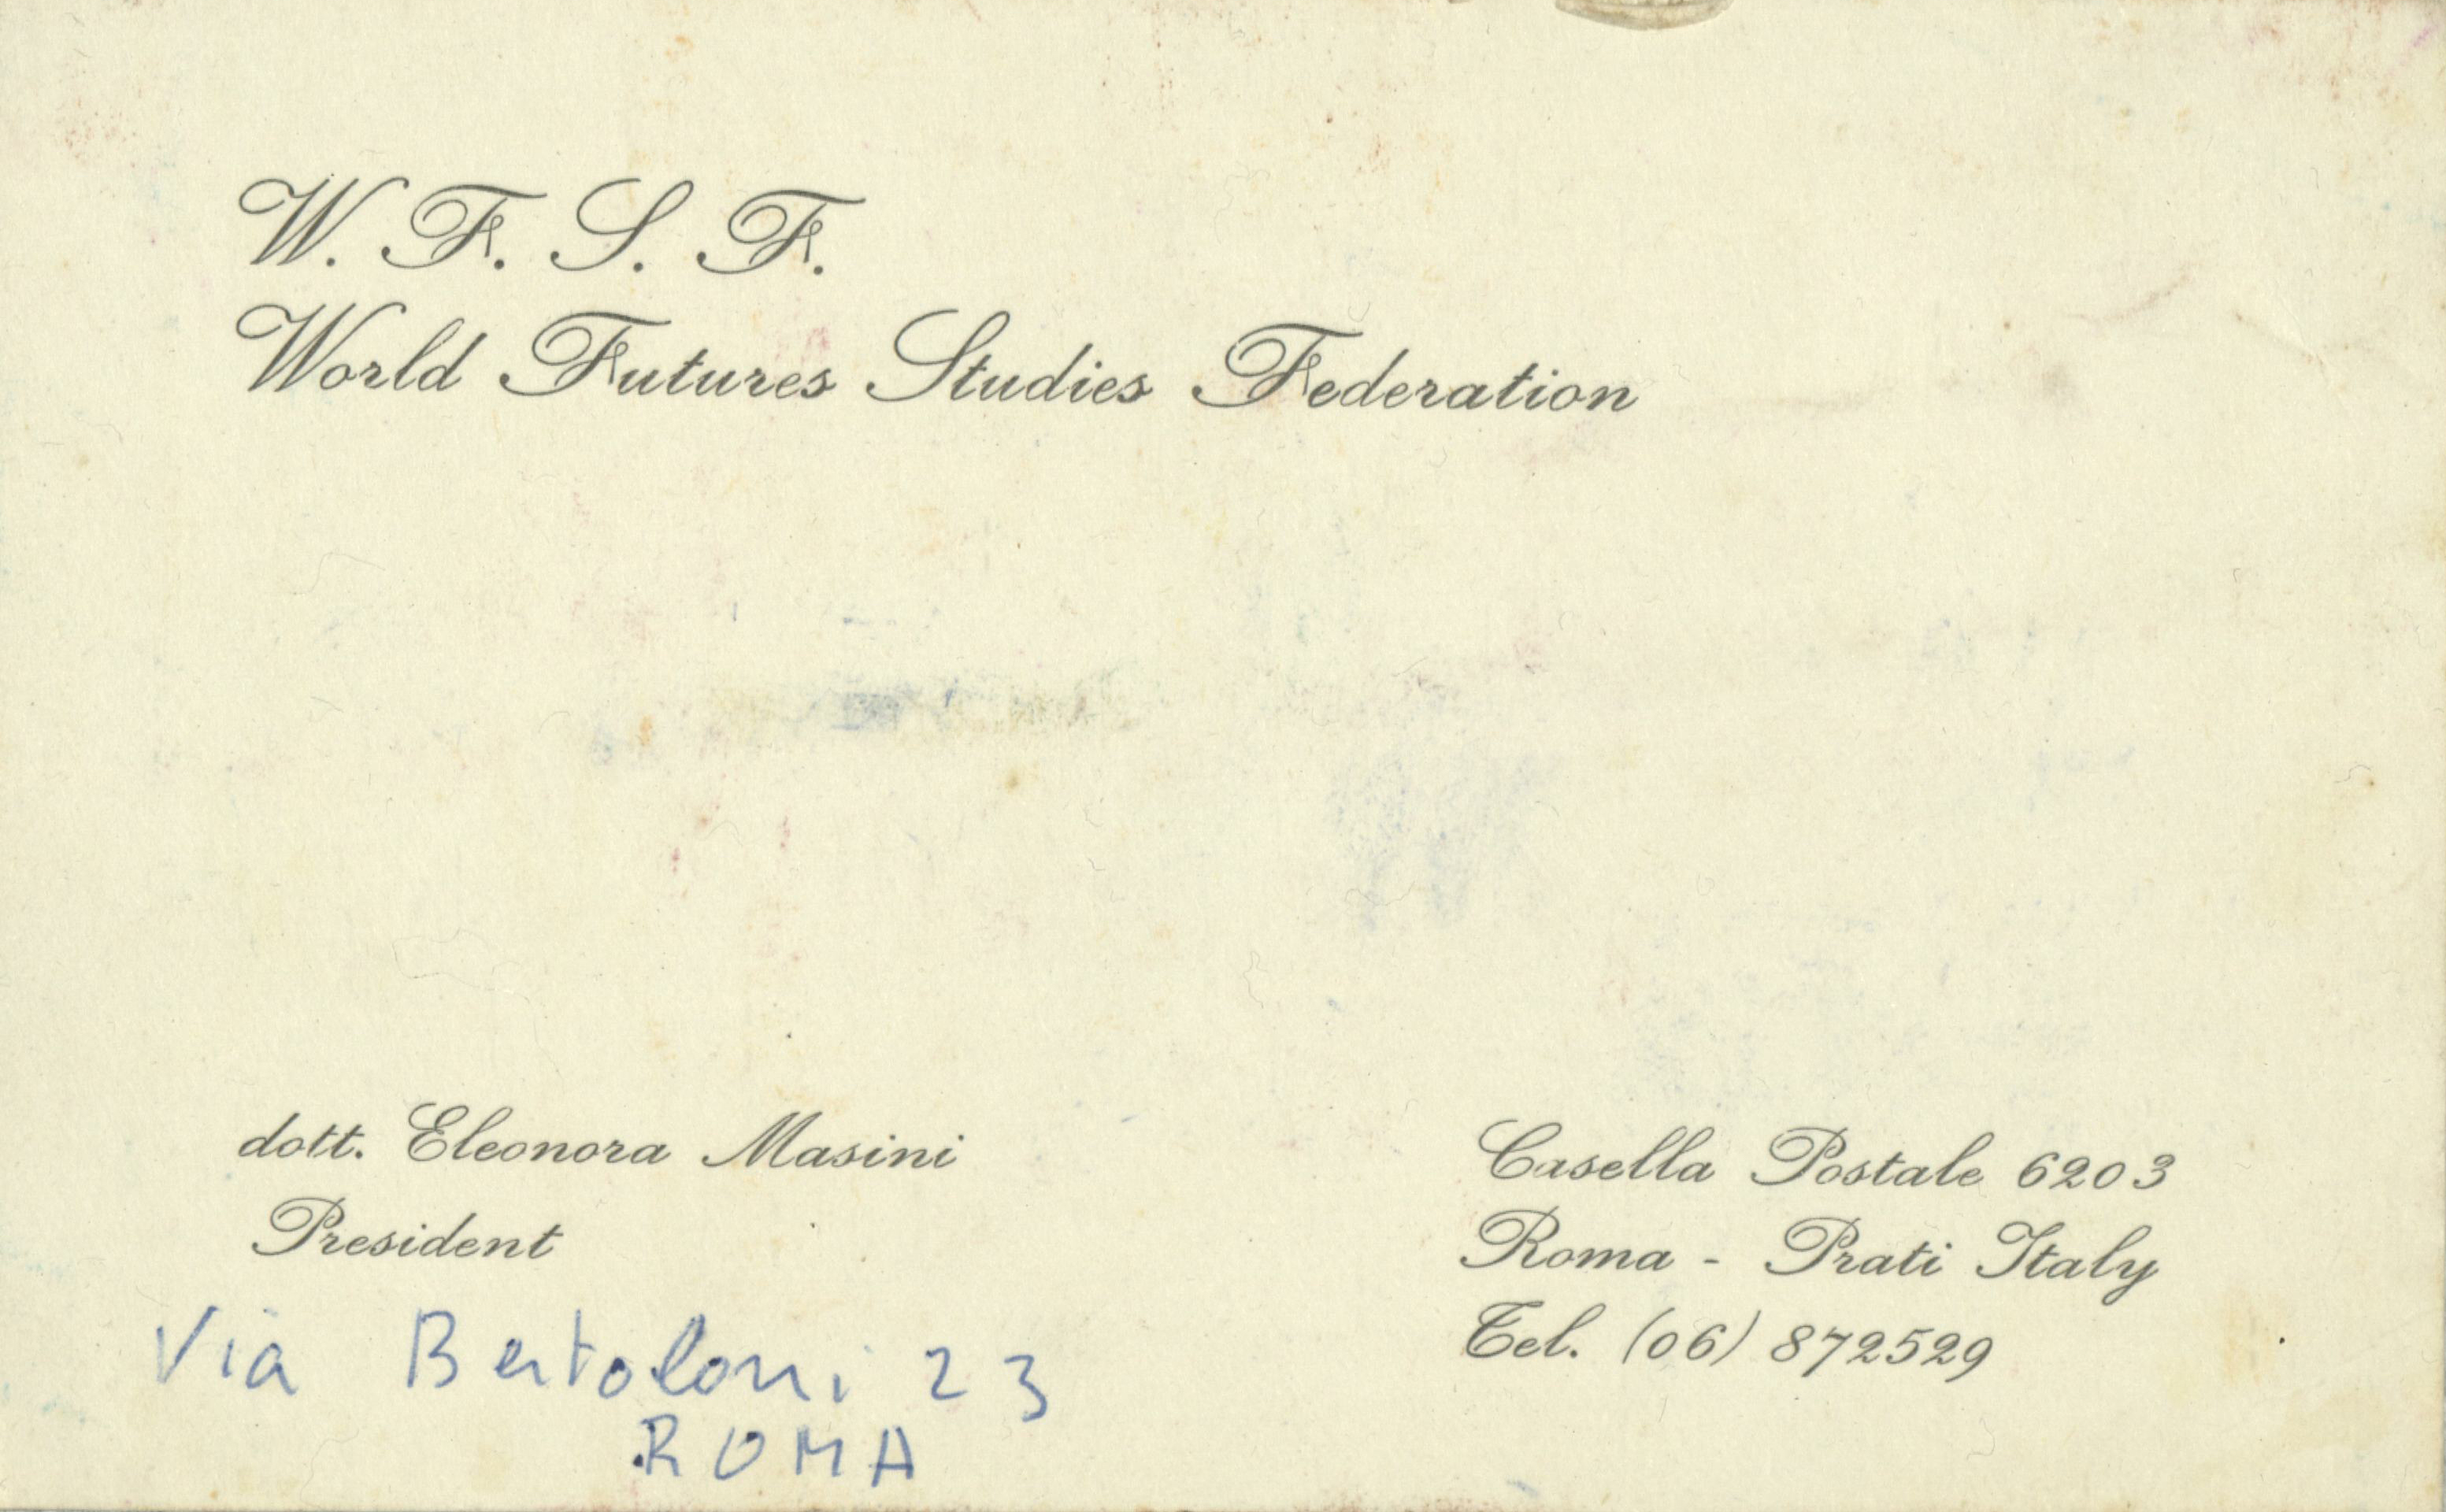 W. F. S. F.
World Futures Studies Federation
dott. Eleonora Masini
President
Via Bertoloni 23
ROMA
Casella Postale 6203
Roma - Prati Italy
Tel. (06) 872529